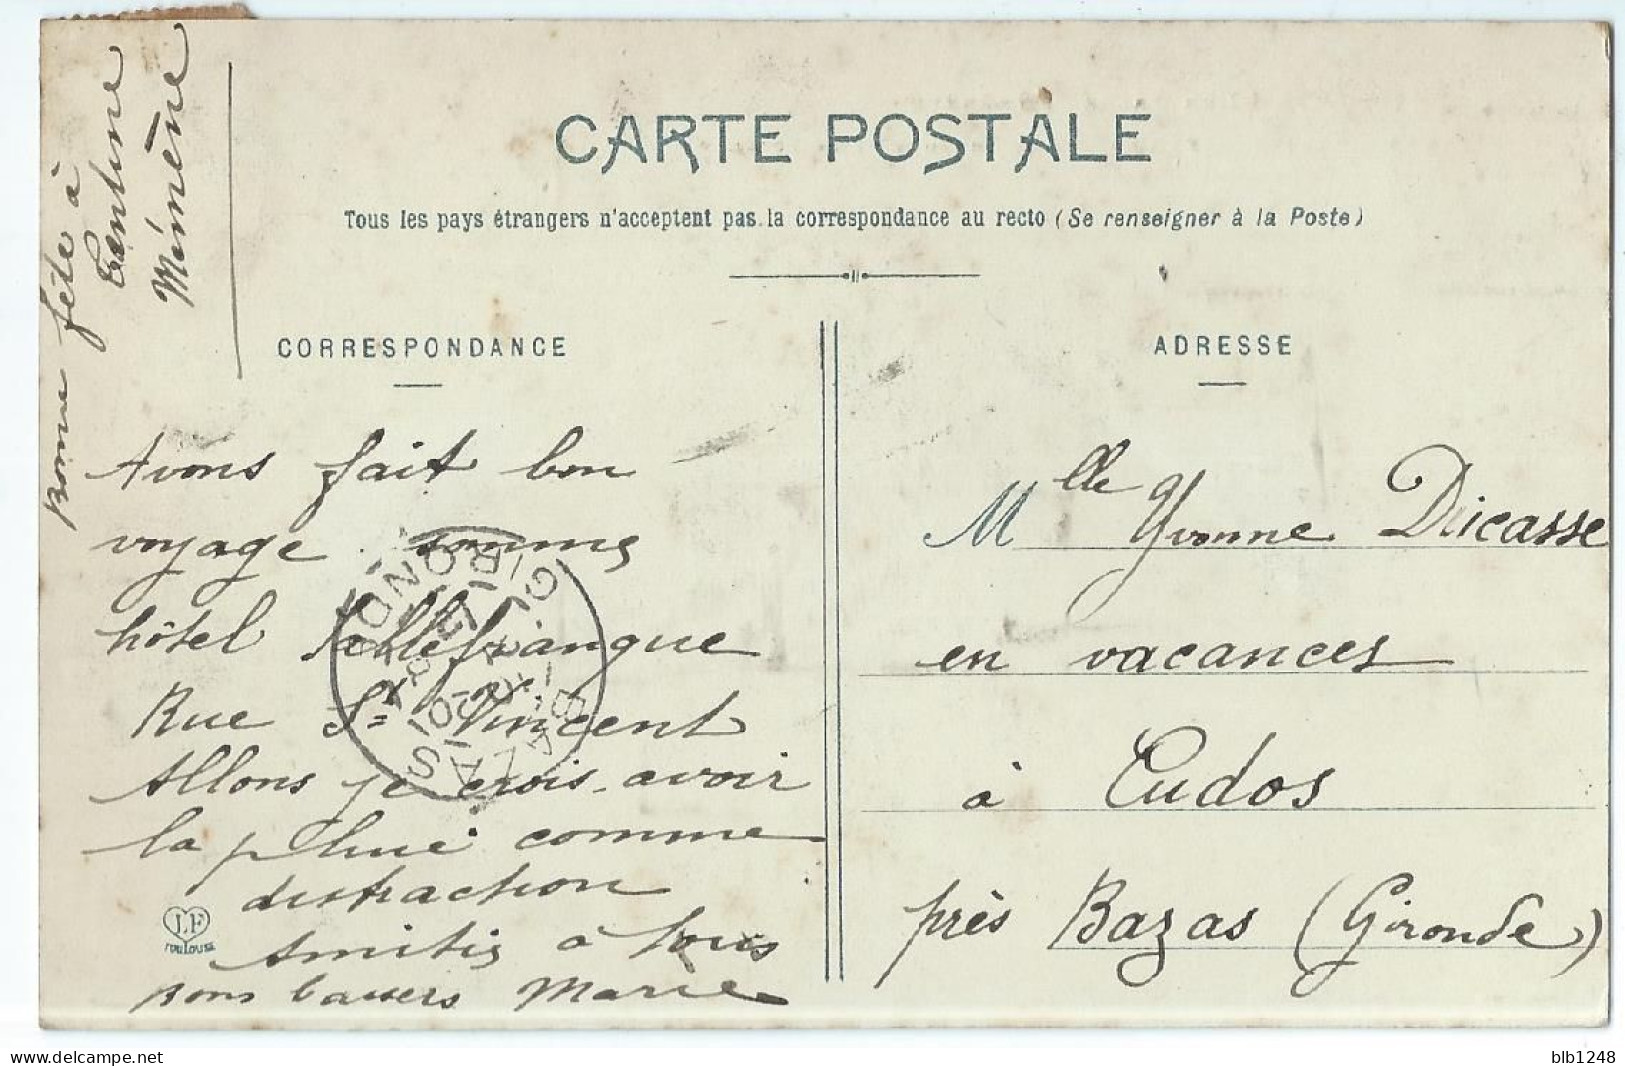 CARTE POSTALE
Tous les pays étrangers n'acceptent pas la correspondance au recto (Se renseigner à la Poste)
CORRESPONDANCE
ADRESSE
Bonne fête à
Tentine
Mémène
Avons fait bon
voyage. sommes
hôtel Sallefranque
Rue St Vincent
Allons je crois avoir
la pluie comme
distraction
Amitiés à tous
Bons baisers Marie
Mlle Yvonne Ducasse
en vacances
à Cudos
près Bazas (Gironde)
BAZAS
GIRONDE
LF
TOULOUSE
blb1248